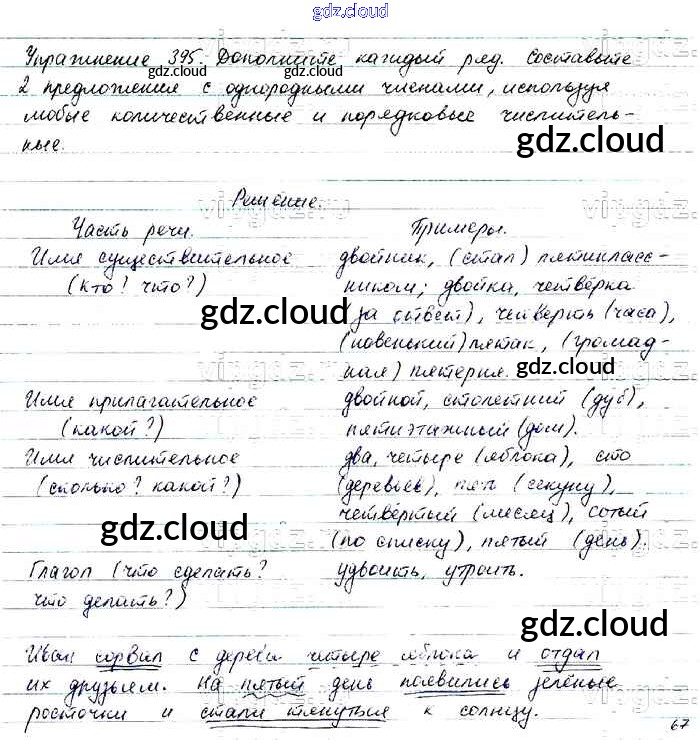 gdz.cloud
Упражнение 395. Дополните каждый ряд. Составьте
gdz.cloud gdz.cloud
2 предложения с однородными членами, используя
любые количественные и порядковые числитель-
ные.
gdz.cloud
Решение.
Часть речи. Примеры.
Имя существительное двойник, (стал) пятикласс-
(кто? что?) ником; двойка, четвёрка
gdz.cloud (за ответ), четверть (часа),
(новенький) пятак, (громад-
gdz.cloud
ная) пятерня.
Имя прилагательное двойной, столетний (дуб),
(какой?) пятиэтажный (дом).
Имя числительное два, четыре (яблока), сто
(сколько? какой?) (деревьев), пять (секунд),
gdz.cloud четвёртый (месяц), сотый
(по списку), пятый (день).
Глагол (что сделать? удвоить, утроить.
что делать?)
gdz.cloud
Иван сорвал с дерева четыре яблока и отдал
их друзьям. На пятый день появились зелёные
росточки и стали тянуться к солнцу.
67